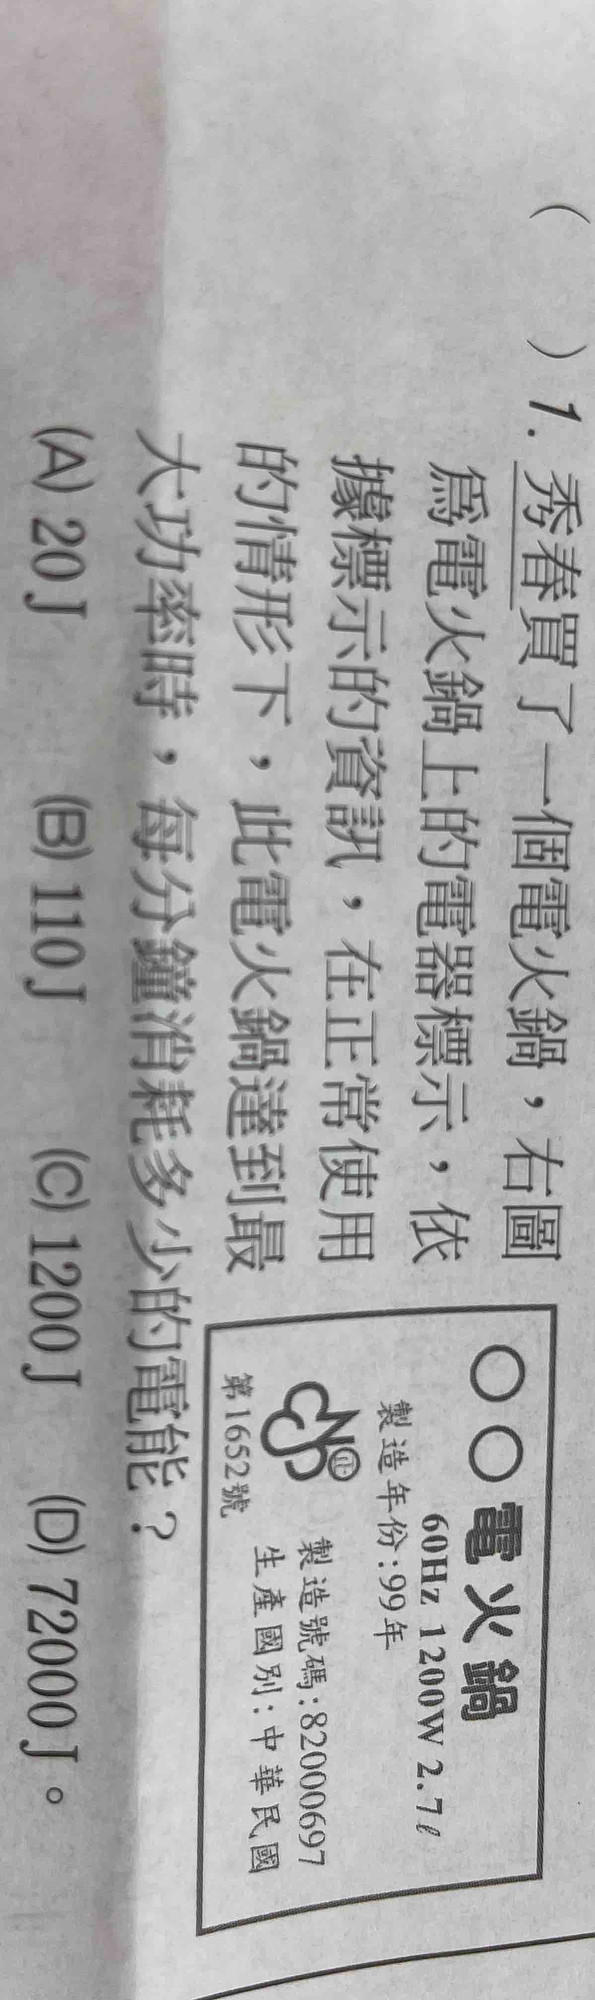 (　　) 1. 秀春買了一個電火鍋，右圖
為電火鍋上的電器標示，依
據標示的資訊，在正常使用
的情形下，此電火鍋達到最
大功率時，每分鐘消耗多少的電能？
(A) 20 J　(B) 110 J　(C) 1200 J　(D) 72000 J。
○○電火鍋
60Hz 1200W 2.7ℓ
製造年份:99年
製造號碼:82000697
生產國別:中華民國
第1652號